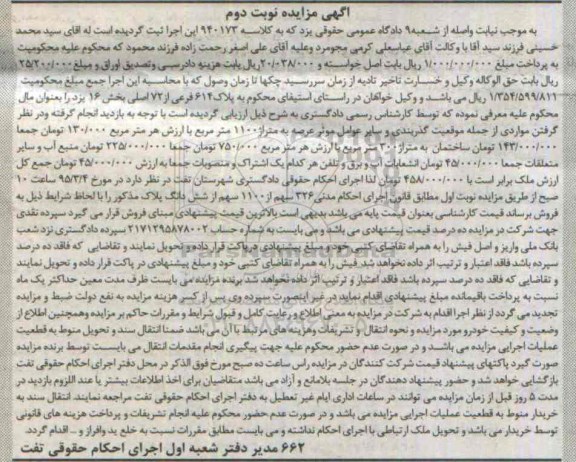 آگهی مزایده نوبت دوم
به موجب نیابت واصله از شعبه۹ دادگاه عمومی حقوقی یزد که به کلاسه ۹۴۰۱۷۳ این اجرا ثبت گردیده است له اقای سید محمد
حسینی فرزند سید آقا با وکالت آقای عباسعلی کرمی مجومرد وعلیه آقای علی اصغر رحمت زاده فرزند محمود که محکوم علیه محکومیت
به پرداخت مبلغ ۱/۰۰۰/۰۰۰/۰۰۰ ریال بابت اصل خواسته و ۲۰/۰۳۸/۰۰۰ ریال بابت هزینه دادرسی وتصدیق اوراق و مبلغ ۲۵/۲۰۰/۰۰۰
ریال بابت حق الوکاله وکیل و خسارت تاخیر تادیه از زمان سررسید چکها تا زمان وصول که با محاسبه این اجرا جمع مبلغ محکومیت
۱/۳۵۴/۵۹۹/۸۱۱ ریال می باشد و وکیل خواهان در راستای استیفای محکوم به پلاک۶۱۴ فرعی از۷۲ اصلی بخش ۱۶ یزد را بعنوان مال
محکوم علیه معرفی نموده که توسط کارشناس رسمی دادگستری به شرح ذیل ارزیابی گردیده است با توجه به بازدید انجام گرفته ودر نظر
گرفتن مواردی از جمله موقعیت گذربندی و سایر عوامل موثر عرصه به متراژ۱۱۰۰ متر مربع با ارزش هر متر مربع ۱۳۰/۰۰۰ تومان جمعا
۱۴۳/۰۰۰/۰۰۰ تومان ساختمان به متراژ۳۰۰ متر مربع با ارزش هر متر مربع ۷۵۰/۰۰۰ تومان جمعا ۲۲۵/۰۰۰/۰۰۰ تومان منبع آب و سایر
متعلقات جمعا ۴۵/۰۰۰/۰۰۰ تومان انشعابات آب و برق و تلفن هر کدام یک اشتراک و منصوبات جمعا به ارزش ۴۵/۰۰۰/۰۰۰ تومان جمع کل
ارزش ملک برابر است با ۴۵۸/۰۰۰/۰۰۰ تومان لذا اجرای احکام حقوقی دادگستری شهرستان تفت در نظر دارد در مورخ ۹۵/۳/۴ ساعت ۱۰
صبح از طریق مزایده نوبت اول مطابق قانون اجرای احکام مدنی۳۲۶ سهم از۱۱۰۰ سهم از شش دانگ پلاک مذکور را با لحاظ شرایط ذیل به
فروش برساند قیمت کارشناسی بعنوان قیمت پایه می باشد بدیهی است بالاترین قیمت پیشنهادی مبنای فروش قرار می گیرد سپرده نقدی
جهت شرکت در مزایده ده درصد قیمت پیشنهادی می باشد و می بایست به شماره حساب ۲۱۷۱۲۹۵۸۷۸۰۰۲ سپرده دادگستری نزد شعب
بانک ملی واریز و اصل فیش را به همراه تقاضای کتبی خود و مبلغ پیشنهادی در پاکت قرار داده و تحویل نمایند و تقاضایی که فاقد ده درصد
سپرده باشد فاقد اعتبار و ترتیب اثر داده نخواهد شد فیش را به همراه تقاضای کتبی خود و مبلغ پیشنهادی در پاکت قرار داده و تحویل نمایند
و تقاضایی که فاقد ده درصد سپرده باشد فاقد اعتبار و ترتیب اثر داده نخواهد شد برنده مزایده می بایست ظرف مدت معین حداکثر یک ماه
نسبت به پرداخت باقیمانده مبلغ پیشنهادی اقدام نماید در غیر اینصورت سپرده وی پس از کسر هزینه مزایده به نفع دولت ضبط و مزایده
تجدید می گردد از نظر اجرا اقدام به شرکت در مزایده به معنی اطلاع و رعایت کامل و قبول شرایط و مقررات حاکم بر مزایده وهمچنین اطلاع از
وضعیت و کیفیت خودرو مورد مزایده و نحوه انتقال و تشریفات وهزینه های مرتبط با آن می باشد ضمنا انتقال سند و تحویل منوط به قطعیت
عملیات اجرایی مزایده می باشد و در صورت عدم حضور محکوم علیه جهت پیگیری انجام مقدمات انتقال می بایست توسط برنده مزایده
صورت گیرد پاکتهای پیشنهاد قیمت شرکت کنندگان در مزایده راس ساعت ده صبح مورخ فوق الذکر در محل دفتر اجرای احکام حقوقی تفت
بازگشایی خواهد شد و حضور پیشنهاد دهندگان در جلسه بلامانع و آزاد می باشد متقاضیان برای اخذ اطلاعات بیشتر یا عند اللزوم بازدید در
مدت ۵ روز قبل از زمان مزایده می توانند در ساعات اداری ایام غیر تعطیل به دفتر اجرای احکام حقوقی تفت مراجعه نمایند. انتقال سند به
خریدار منوط به قطعیت عملیات اجرایی مزایده می باشد و در صورت عدم حضور محکوم علیه انجام تشریفات و پرداخت هزینه های قانونی
توسط خریدار می باشد و تحویل ملک ارتباطی با اجرای احکام نداشته و می بایست مطابق مقررات نسبت به خلع ید وافراز و .. اقدام گردد.
۶۶۲ مدیر دفتر شعبه اول اجرای احکام حقوقی تفت